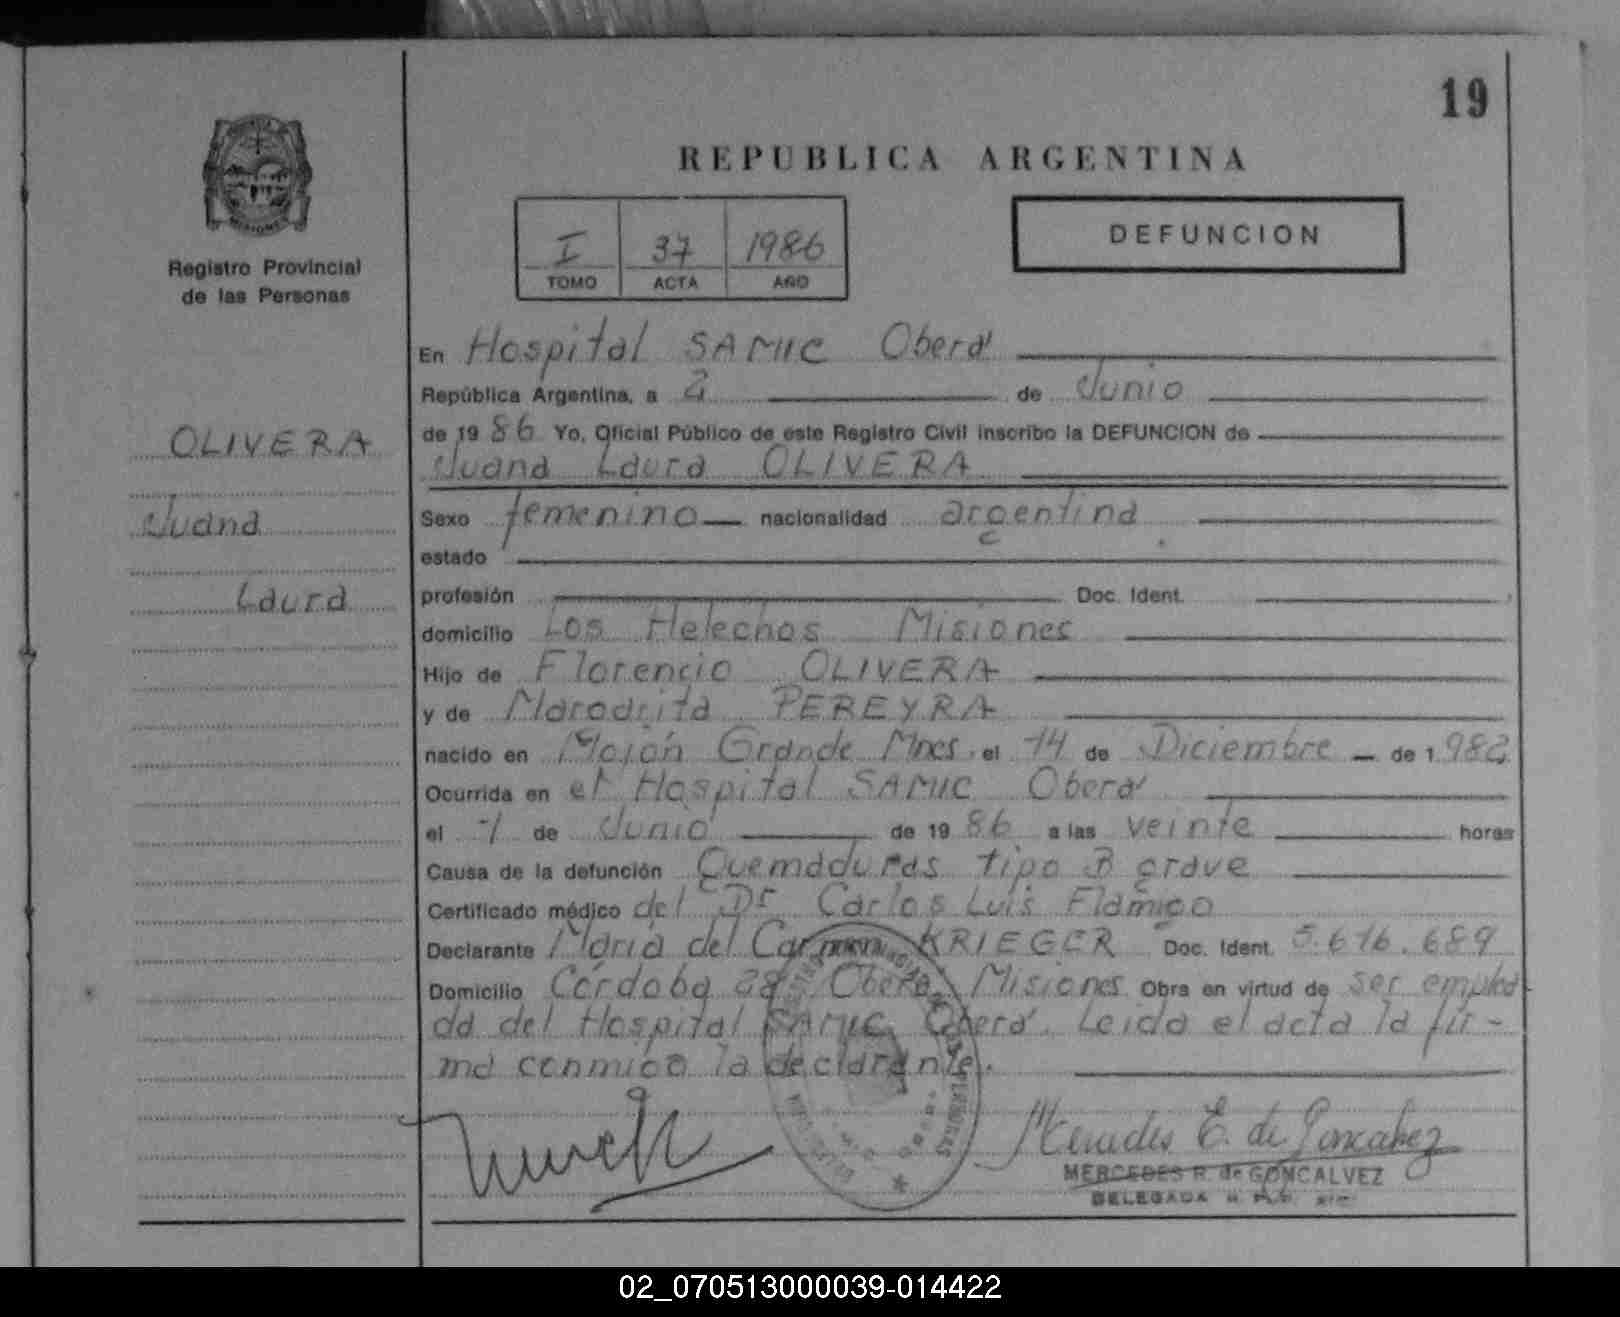 19
REPUBLICA ARGENTINA
I 37 1986
TOMO ACTA AÑO
DEFUNCION
MISIONES
Registro Provincial
de las Personas
OLIVERA
Juana
Laura
En Hospital SAMIC Oberá
República Argentina, a 2 de Junio
de 19 86 Yo, Oficial Público de este Registro Civil inscribo la DEFUNCION de
Juana Laura OLIVERA
Sexo femenino nacionalidad argentina
estado
profesión Doc. Ident.
domicilio Los Helechos Misiones
Hijo de Florencio OLIVERA
y de Margarita PEREYRA
nacido en Mojón Grande Mnes. el 14 de Diciembre de 1.982
Ocurrida en el Hospital SAMIC Oberá
el 1 de Junio de 19 86 a las veinte horas
Causa de la defunción Quemaduras tipo B grave
Certificado médico del Dr. Carlos Luis Flamigo
Declarante María del Carmen KRIEGER Doc. Ident. 5.616.689
Domicilio Córdoba 28 Oberá, Misiones Obra en virtud de ser emplea
da del Hospital SAMIC Oberá. Leida el acta la fir-
ma conmigo la declarante.
Mercedes E. de Goncalvez
MERCEDES R. de GONCALVEZ
DELEGADA
02_070513000039-014422